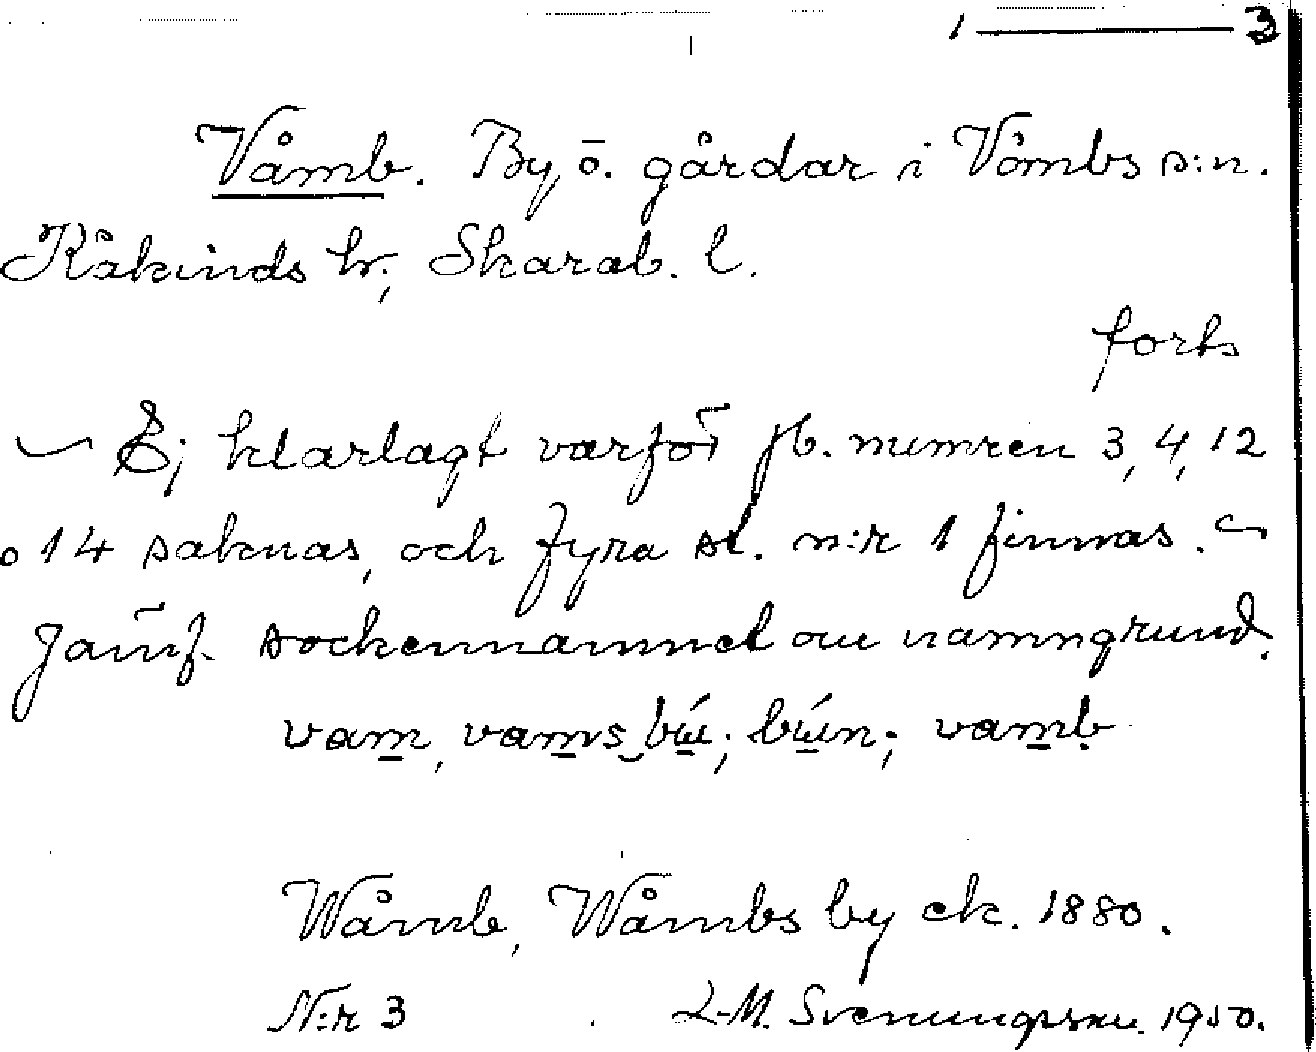 1 — 3
Våmb. By, o. gårdar i Våmbs s:n.
Kåkinds hr, Skarab. l.
forts
~ Ej klarlagt varför jb. numren 3, 4, 12
o 14 saknas, och fyra st. n:r 1 finnas. ~
Jämf. sockennamnet au namngrund.
vam, vams bú; bún; vamb
Wåmb, Wåmbs by ek. 1880.
N:r 3 L-M. Svenungsson. 1950.